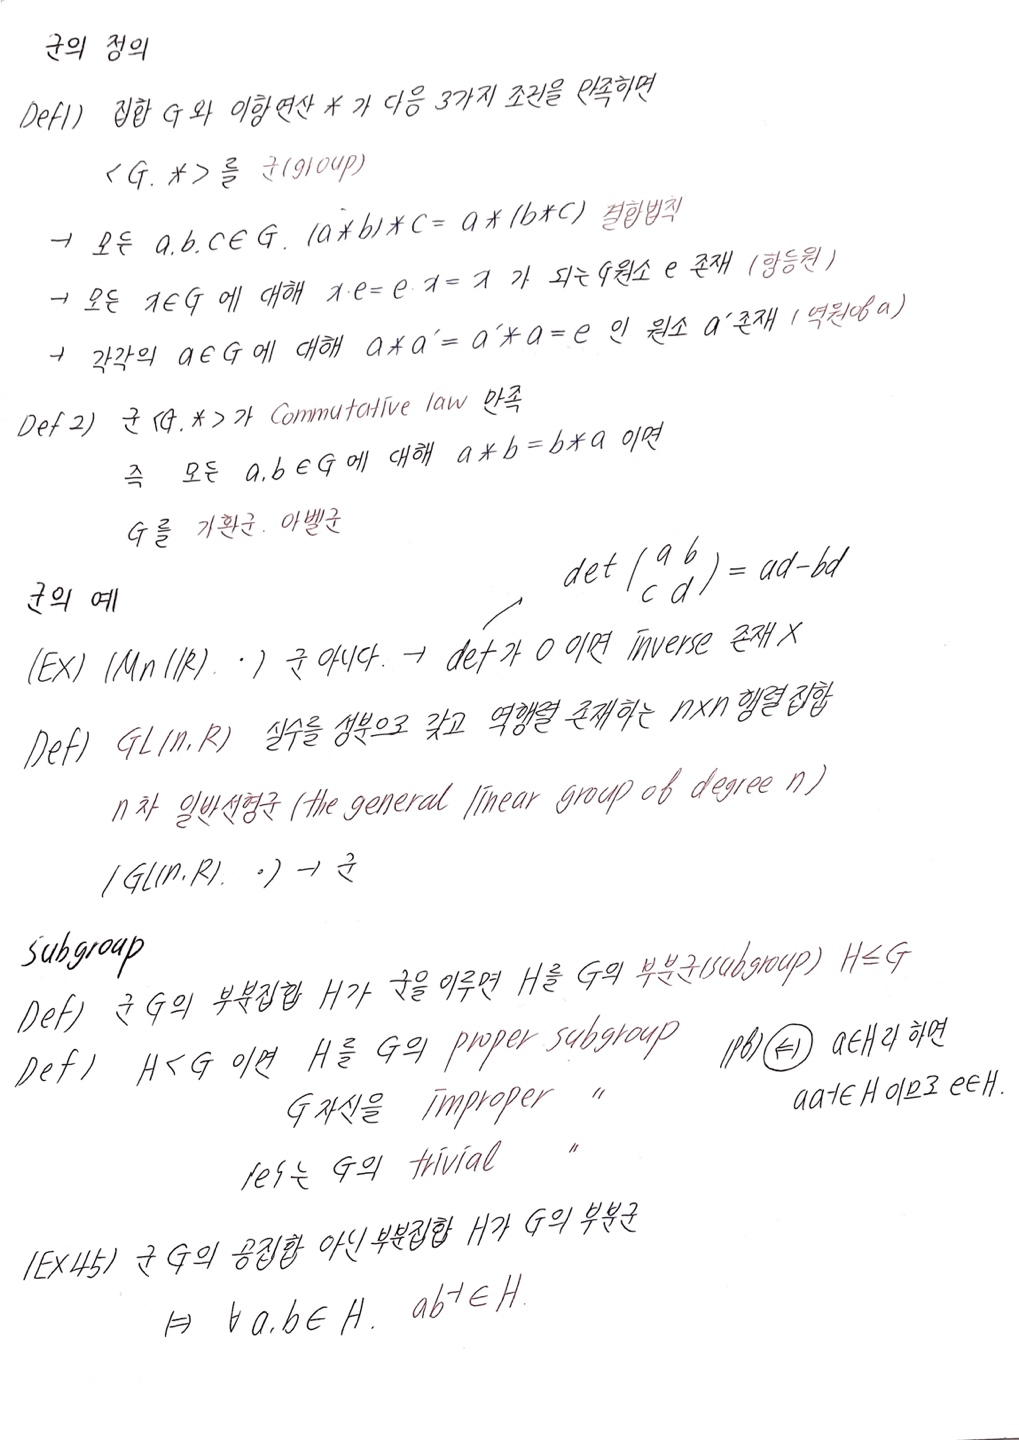 군의 정의
Def1) 집합 G 와 이항연산 * 가 다음 3가지 조건을 만족하면
<G. *> 를 군(group)
→ 모든 a.b.c∈G. (a*b)*c = a*(b*c) 결합법칙
→ 모든 x∈G 에 대해 x·e = e·x = x 가 되는 G원소 e 존재 (항등원)
→ 각각의 a∈G 에 대해 a*a′ = a′*a = e 인 원소 a′ 존재 (역원of a)
Def 2) 군 <G.*> 가 Commutative law 만족
즉 모든 a.b∈G 에 대해 a*b = b*a 이면
G를 가환군. 아벨군
det (a b
c d) = ad-bd
군의 예
(EX) (Mn(ℝ). ·) 군 아니다. → det가 0 이면 inverse 존재 X
Def) GL(n.R) 실수를 성분으로 갖고 역행렬 존재하는 n×n 행렬집합
n차 일반선형군 (the general linear group of degree n)
(GL(n.R). ·) → 군
subgroup
Def) 군 G의 부분집합 H가 군을 이루면 H를 G의 부분군(subgroup) H≤G
Def) H<G 이면 H를 G의 proper subgroup
G자신을 improper "
{e}는 G의 trivial "
(pb) (⇐) a∈H라 하면
aa⁻¹∈H 이므로 e∈H.
(EX45) 군 G의 공집합 아닌 부분집합 H가 G의 부분군
⇔ ∀a.b∈H. ab⁻¹∈H.